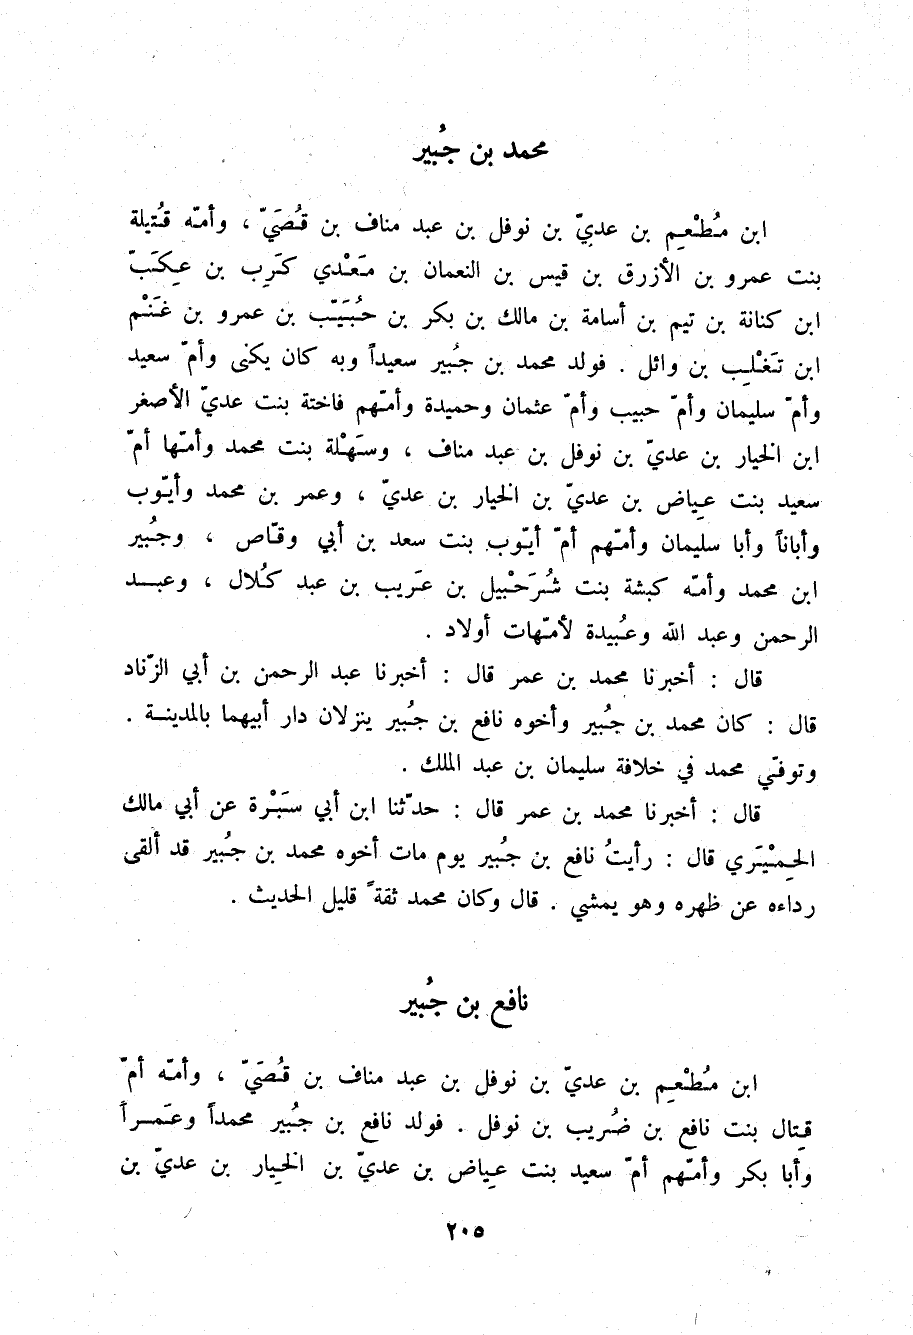 محمد بن جُبير
ابن مُطْعِم بن عديّ بن نوفل بن عبد مناف بن قُصَيّ ، وأمّه قُتيلة
بنت عمرو بن الأزرق بن قيس بن النعمان بن مَعْدي كَرِب بن عِكَبّ
ابن كنانة بن تيم بن أسامة بن مالك بن بكر بن حُبَيّب بن عمرو بن غَنْم
ابن تَغْلِب بن وائل . فولد محمد بن جُبير سعيداً وبه كان يكنى وأمّ سعيد
وأمّ سليمان وأمّ حبيب وأمّ عثمان وحميدة وأمّهم فاختة بنت عديّ الأصغر
ابن الخيار بن عديّ بن نوفل بن عبد مناف ، وسَهْلة بنت محمد وأمّها أمّ
سعيد بنت عِياض بن عديّ بن الخيار بن عديّ ، وعمر بن محمد وأيّوب
وأباناً وأبا سليمان وأمّهم أمّ أيّوب بنت سعد بن أبي وقّاص ، وجُبير
ابن محمد وأمّه كبشة بنت شُرَحْبيل بن عَريب بن عبد كُلال ، وعبــد
الرحمن وعبد الله وعُبيدة لأمّهات أولاد .
قال : أخبرنا محمد بن عمر قال : أخبرنا عبد الرحمن بن أبي الزّناد
قال : كان محمد بن جُبير وأخوه نافع بن جُبير ينزلان دار أبيهما بالمدينـة .
وتوفّي محمد في خلافة سليمان بن عبد الملك .
قال : أخبرنا محمد بن عمر قال : حدّثنا ابن أبي سَبْرة عن أبي مالك
الحِمْيَري قال : رأيتُ نافع بن جُبير يوم مات أخوه محمد بن جُبير قد ألقى
رداءه عن ظهره وهو يمشي . قال وكان محمد ثقةً قليل الحديث .
نافع بن جُبير
ابن مُطْعِم بن عديّ بن نوفل بن عبد مناف بن قُصَيّ ، وأمّه أمّ
قِتال بنت نافع بن ضُريب بن نوفل . فولد نافع بن جُبير محمداً وعَمـراً
وأبا بكر وأمّهم أمّ سعيد بنت عِياض بن عديّ بن الخِيار بن عديّ بن
٢٠٥